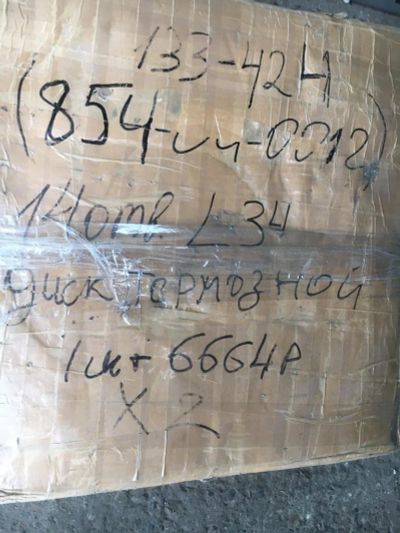 133-42H
(854-ии-0012)
14отв. L34
диск тормозной
1шт 6664Р
X2